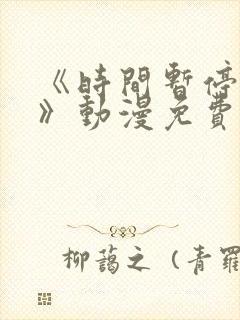 《時間暫停
》動漫免費
柳藹之（青羅